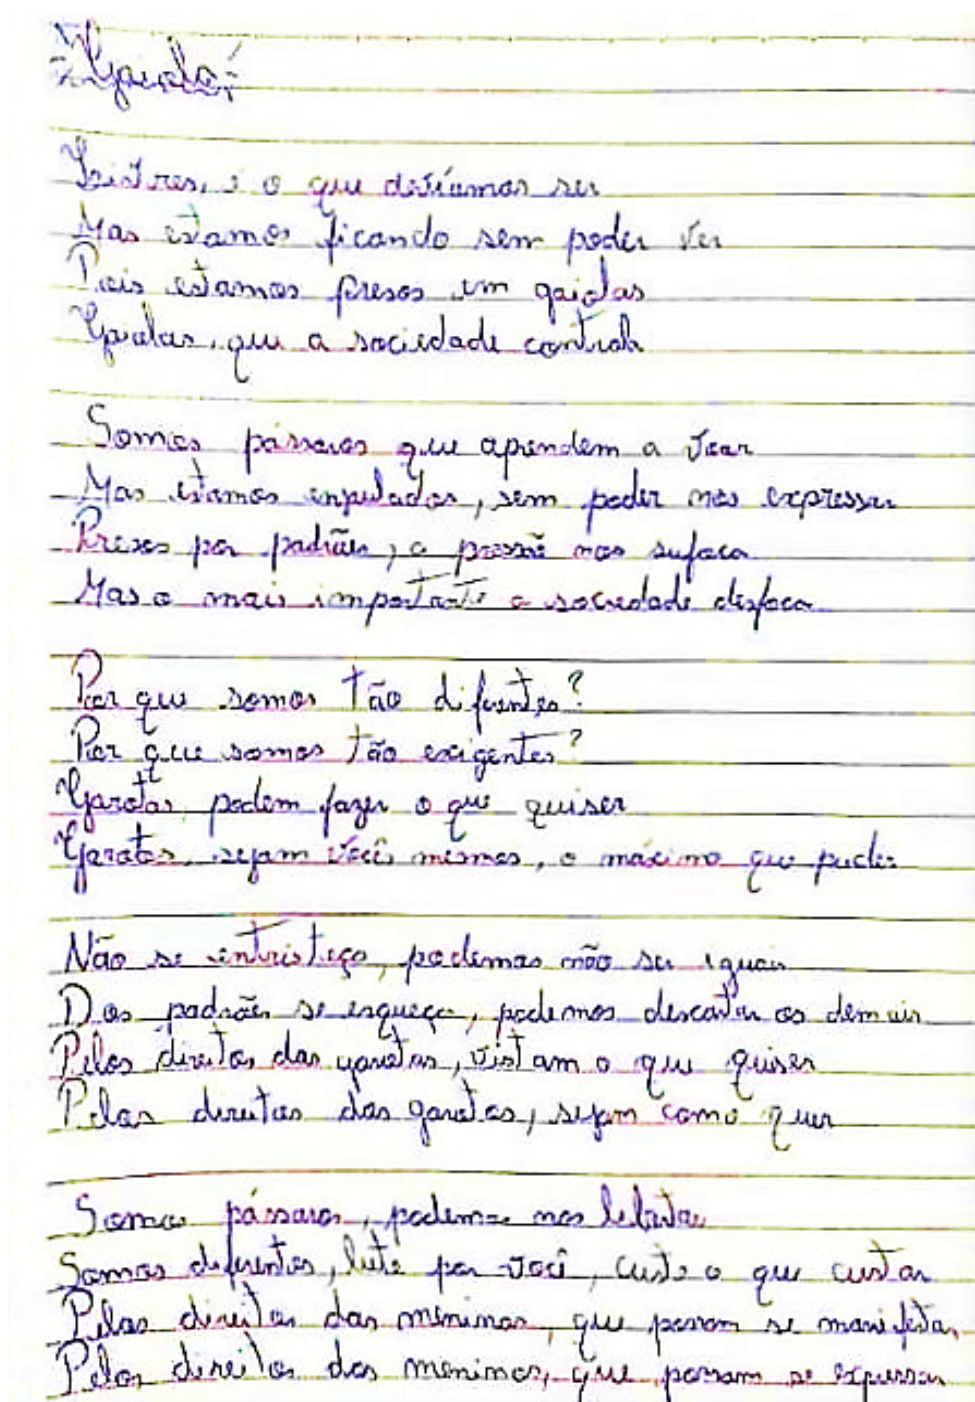 Gaiola
Tristres, é o que devíamos ser
Mas estamos ficando sem poder ver
Pois estamos presos em gaiolas
Gaiolas, que a sociedade controla
Somos pássaros que aprendem a voar
Mas estamos enpulados, sem poder nos expressar
Presos por padrões, a pressão nos sufoca
Mas o mais importante a sociedade desfoca
Por que somos tão difentes?
Por que somos tão exigentes?
Garotas, podem fazer o que quiser
Garotos, sejam vocês mesmos, o máximo que puder
Não se entristeça, podemos não ser iguais
Dos padrões se esqueça, podemos descatar os demais
Pelos direitos das garotas, vistam o que quiser
Pelos direitos dos garotos, sejam como quer
Somos pássaros, podemos nos
Somos diferentes, lute por você, custe o que custar
Pelos direitos das meninas, que possam se manifestar
Pelos direitos dos meninos, que possam se expressar